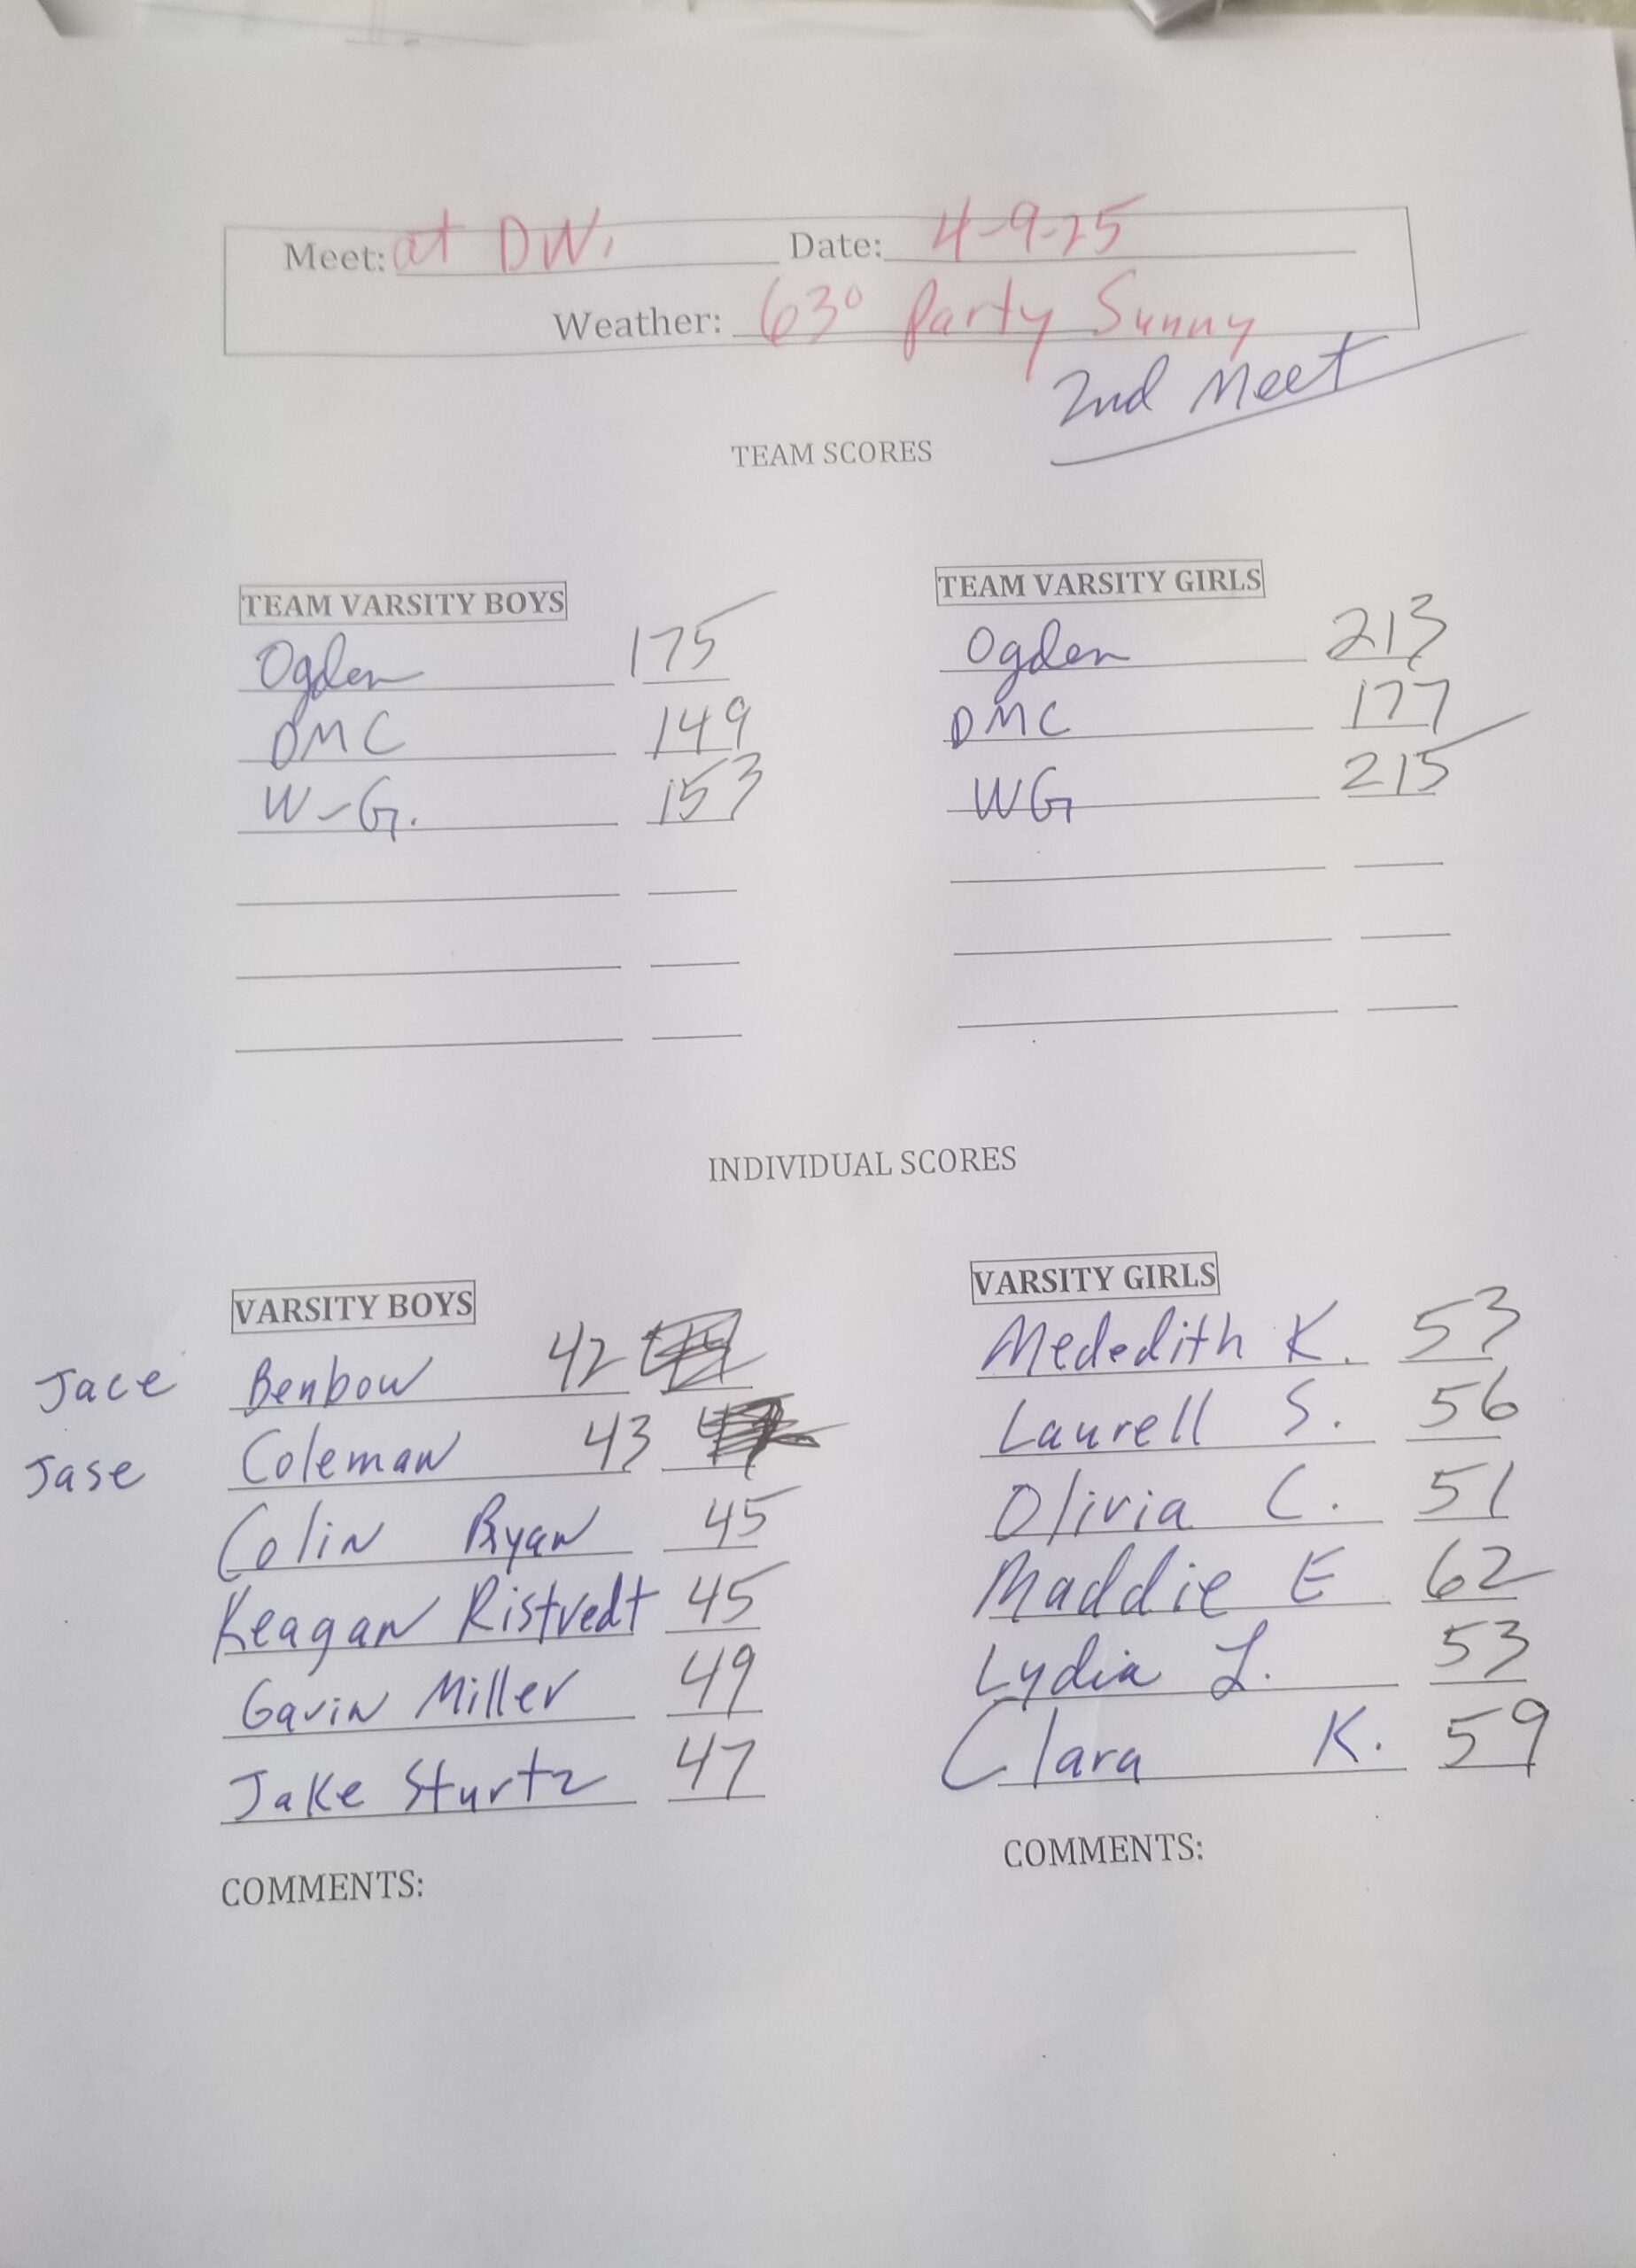 Meet: at DW. Date: 4-9-25
Weather: 63° Party Sunny
2nd Meet
TEAM SCORES
TEAM VARSITY BOYS
Ogden 175
DMC 149
W-G. 153
TEAM VARSITY GIRLS
Ogden 213
DMC 177
WG 215
INDIVIDUAL SCORES
VARSITY BOYS
Jace Benbow 42
Jase Coleman 43
Colin Ryan 45
Keagan Ristvedt 45
Gavin Miller 49
Jake Sturtz 47
COMMENTS:
VARSITY GIRLS
Mededith K. 53
Laurell S. 56
Olivia C. 51
Maddie E 62
Lydia L. 53
Clara K. 59
COMMENTS: